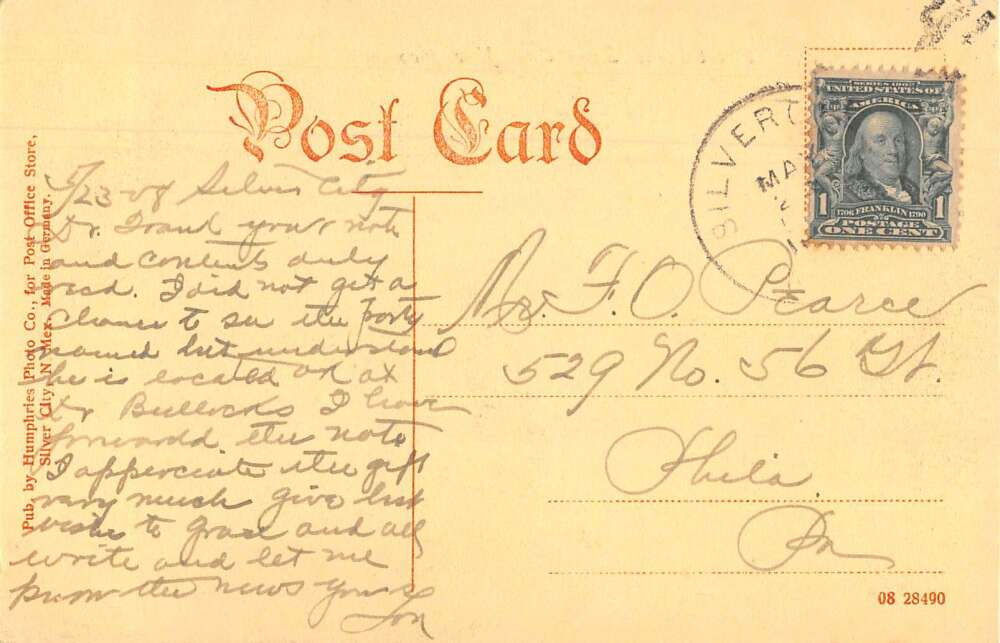 Post Card
Pub. by Humphries Photo Co., for Post Office Store,
Silver City, N. Mex. Made in Germany.
5/23-08 Silver City
Dr. I rand your note
and contents duly
recd. I did not get a
to see the party
named but understand
he is located at
Dr Bullocks I have
forwardd the note
I apperciate the gift
very much give best
wishes to Grace and all
write and let me
know the news yours
Lon
SILVERT
MA
SERIES 1902
UNITED STATES OF
AMERICA
1 1706 FRANKLIN 1790 1
POSTAGE
ONE CENT
Mr. F. O. Pearce
529 No. 56 St.
Phila
Pa
08 28490